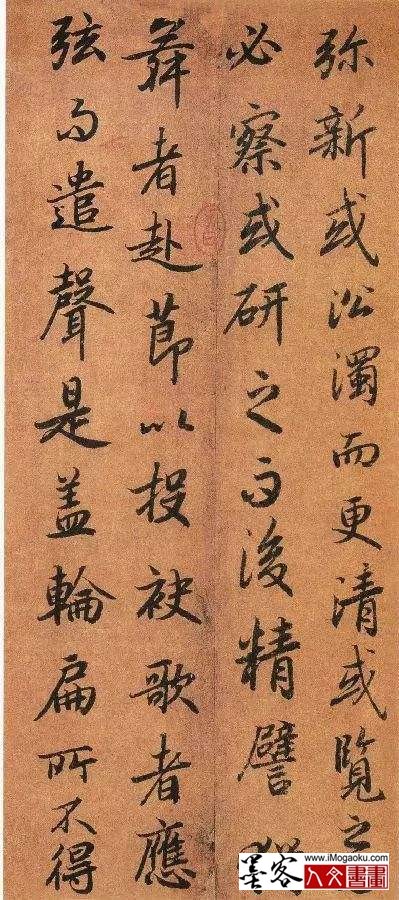 弥新或沿濁而更清或覽之
必察或研之而後精譬
舞者赴節以投袂歌者應
弦而遣聲是盖輪扁所不得
墨客
www.iMogaoku.com
人文書畫